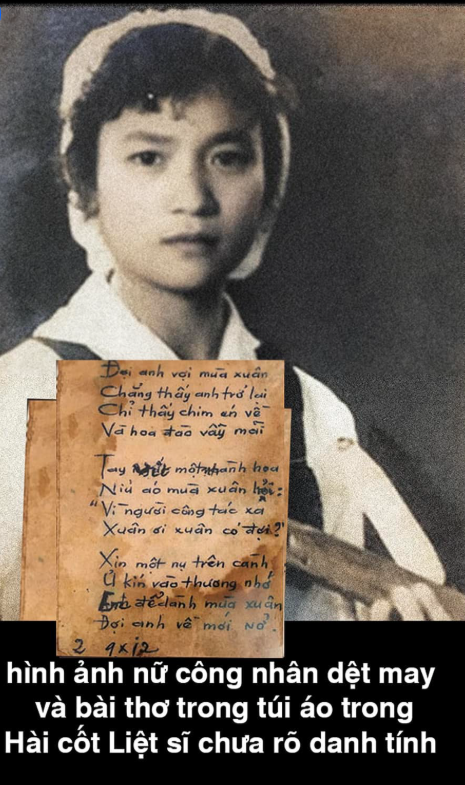 Đợi anh vợi mùa xuân
Chẳng thấy anh trở lại
Chỉ thấy chim én về
Và hoa đào vẫy mãi
Tay một nhành hoa
Níu áo mùa xuân hỏi:
"Vì người công tác xa
Xuân ơi xuân có đợi?"
Xin một nụ trên cành
Ủ kín vào thương nhớ
để dành mùa xuân
Đợi anh về mới nở.
2
hình ảnh nữ công nhân dệt may
và bài thơ trong túi áo trong
Hài cốt Liệt sĩ chưa rõ danh tính